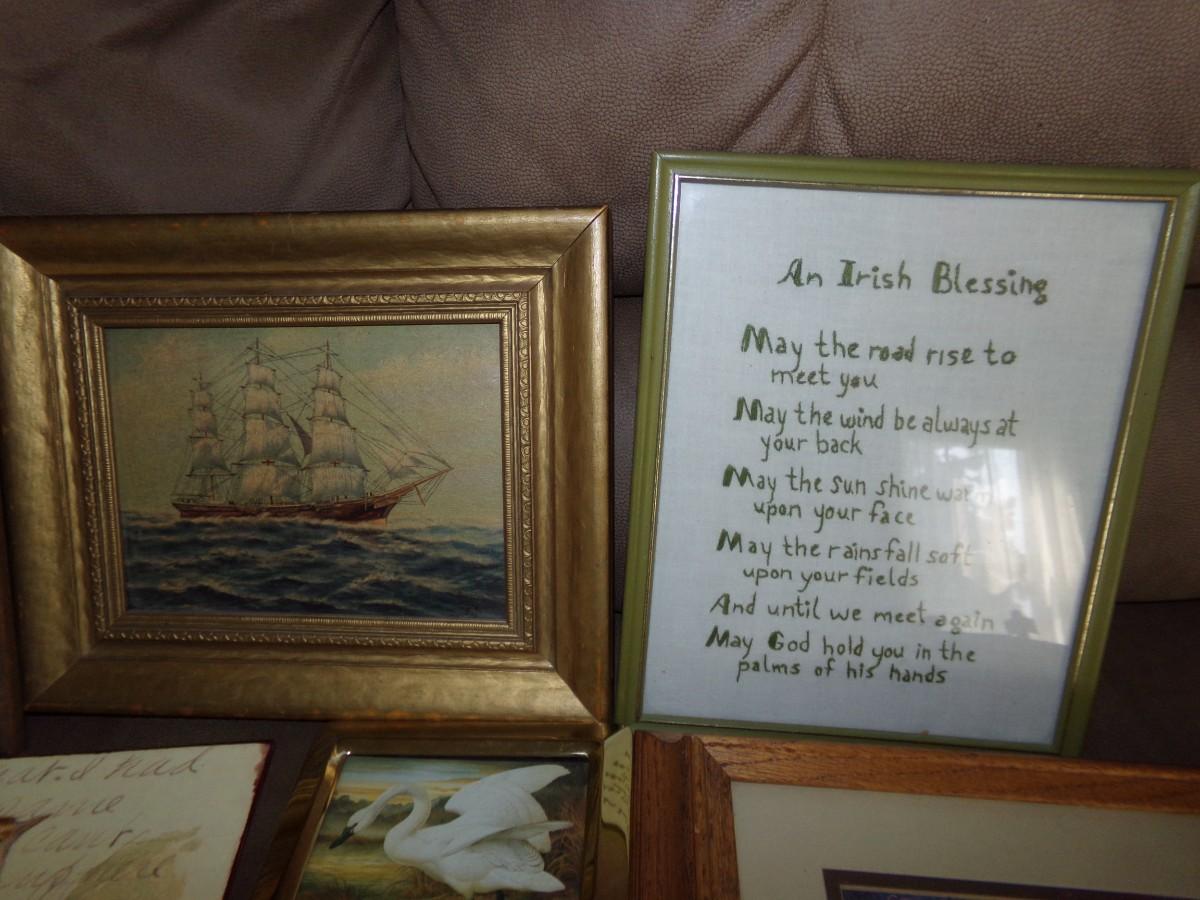 An Irish Blessing
May the road rise to
meet you
May the wind be always at
your back
May the sun shine warm
upon your face
May the rains fall soft
upon your fields
And until we meet again
May God hold you in the
palms of his hands
I had
name
can't